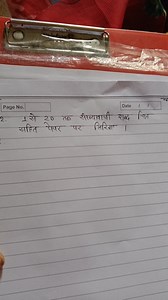 Page No.
Date
1 से 20 तक संख्यावाची शब्द चित्र
सहित पेपर पर लिखिए ।